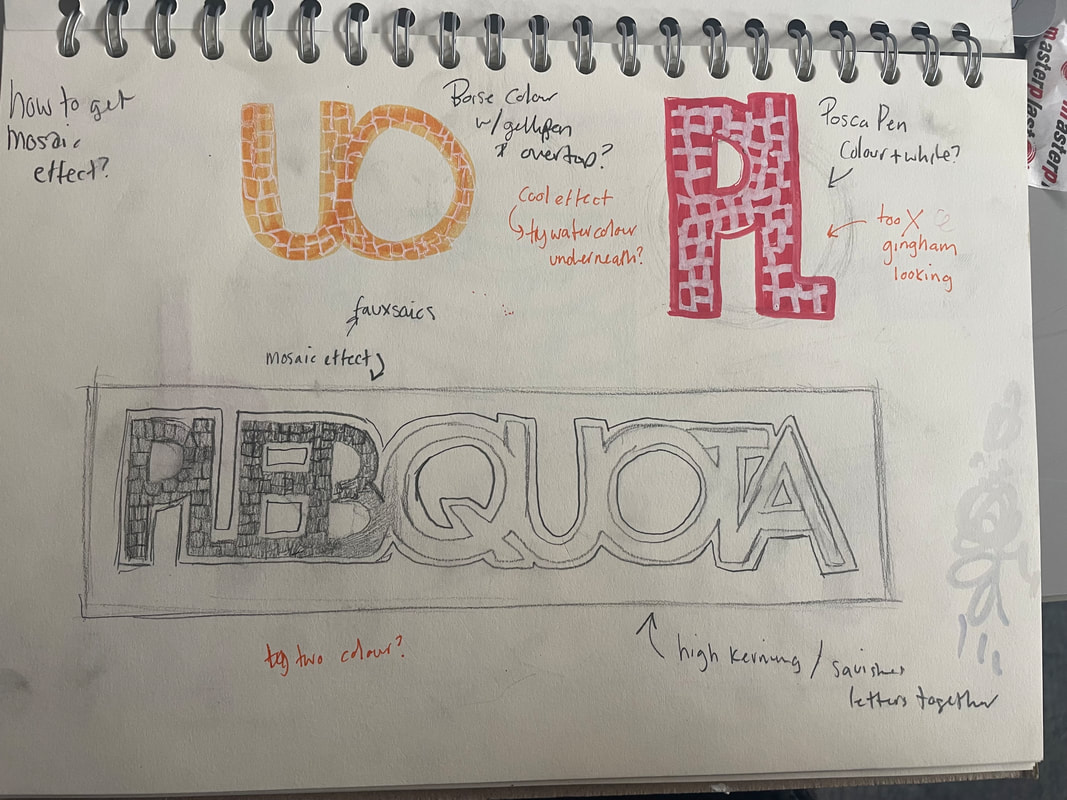 how to get
mosaic
effect?
UO
Base Colour
w/gellypen
overtop?
Cool effect
try watercolour
underneath?
PL
Posca Pen
Colour + white?
too X
gingham
looking
masterplast
masterpl
fauxsaics
mosaic effect
PLEBQUOTA
try two colour?
high kerning / squishes
letters together